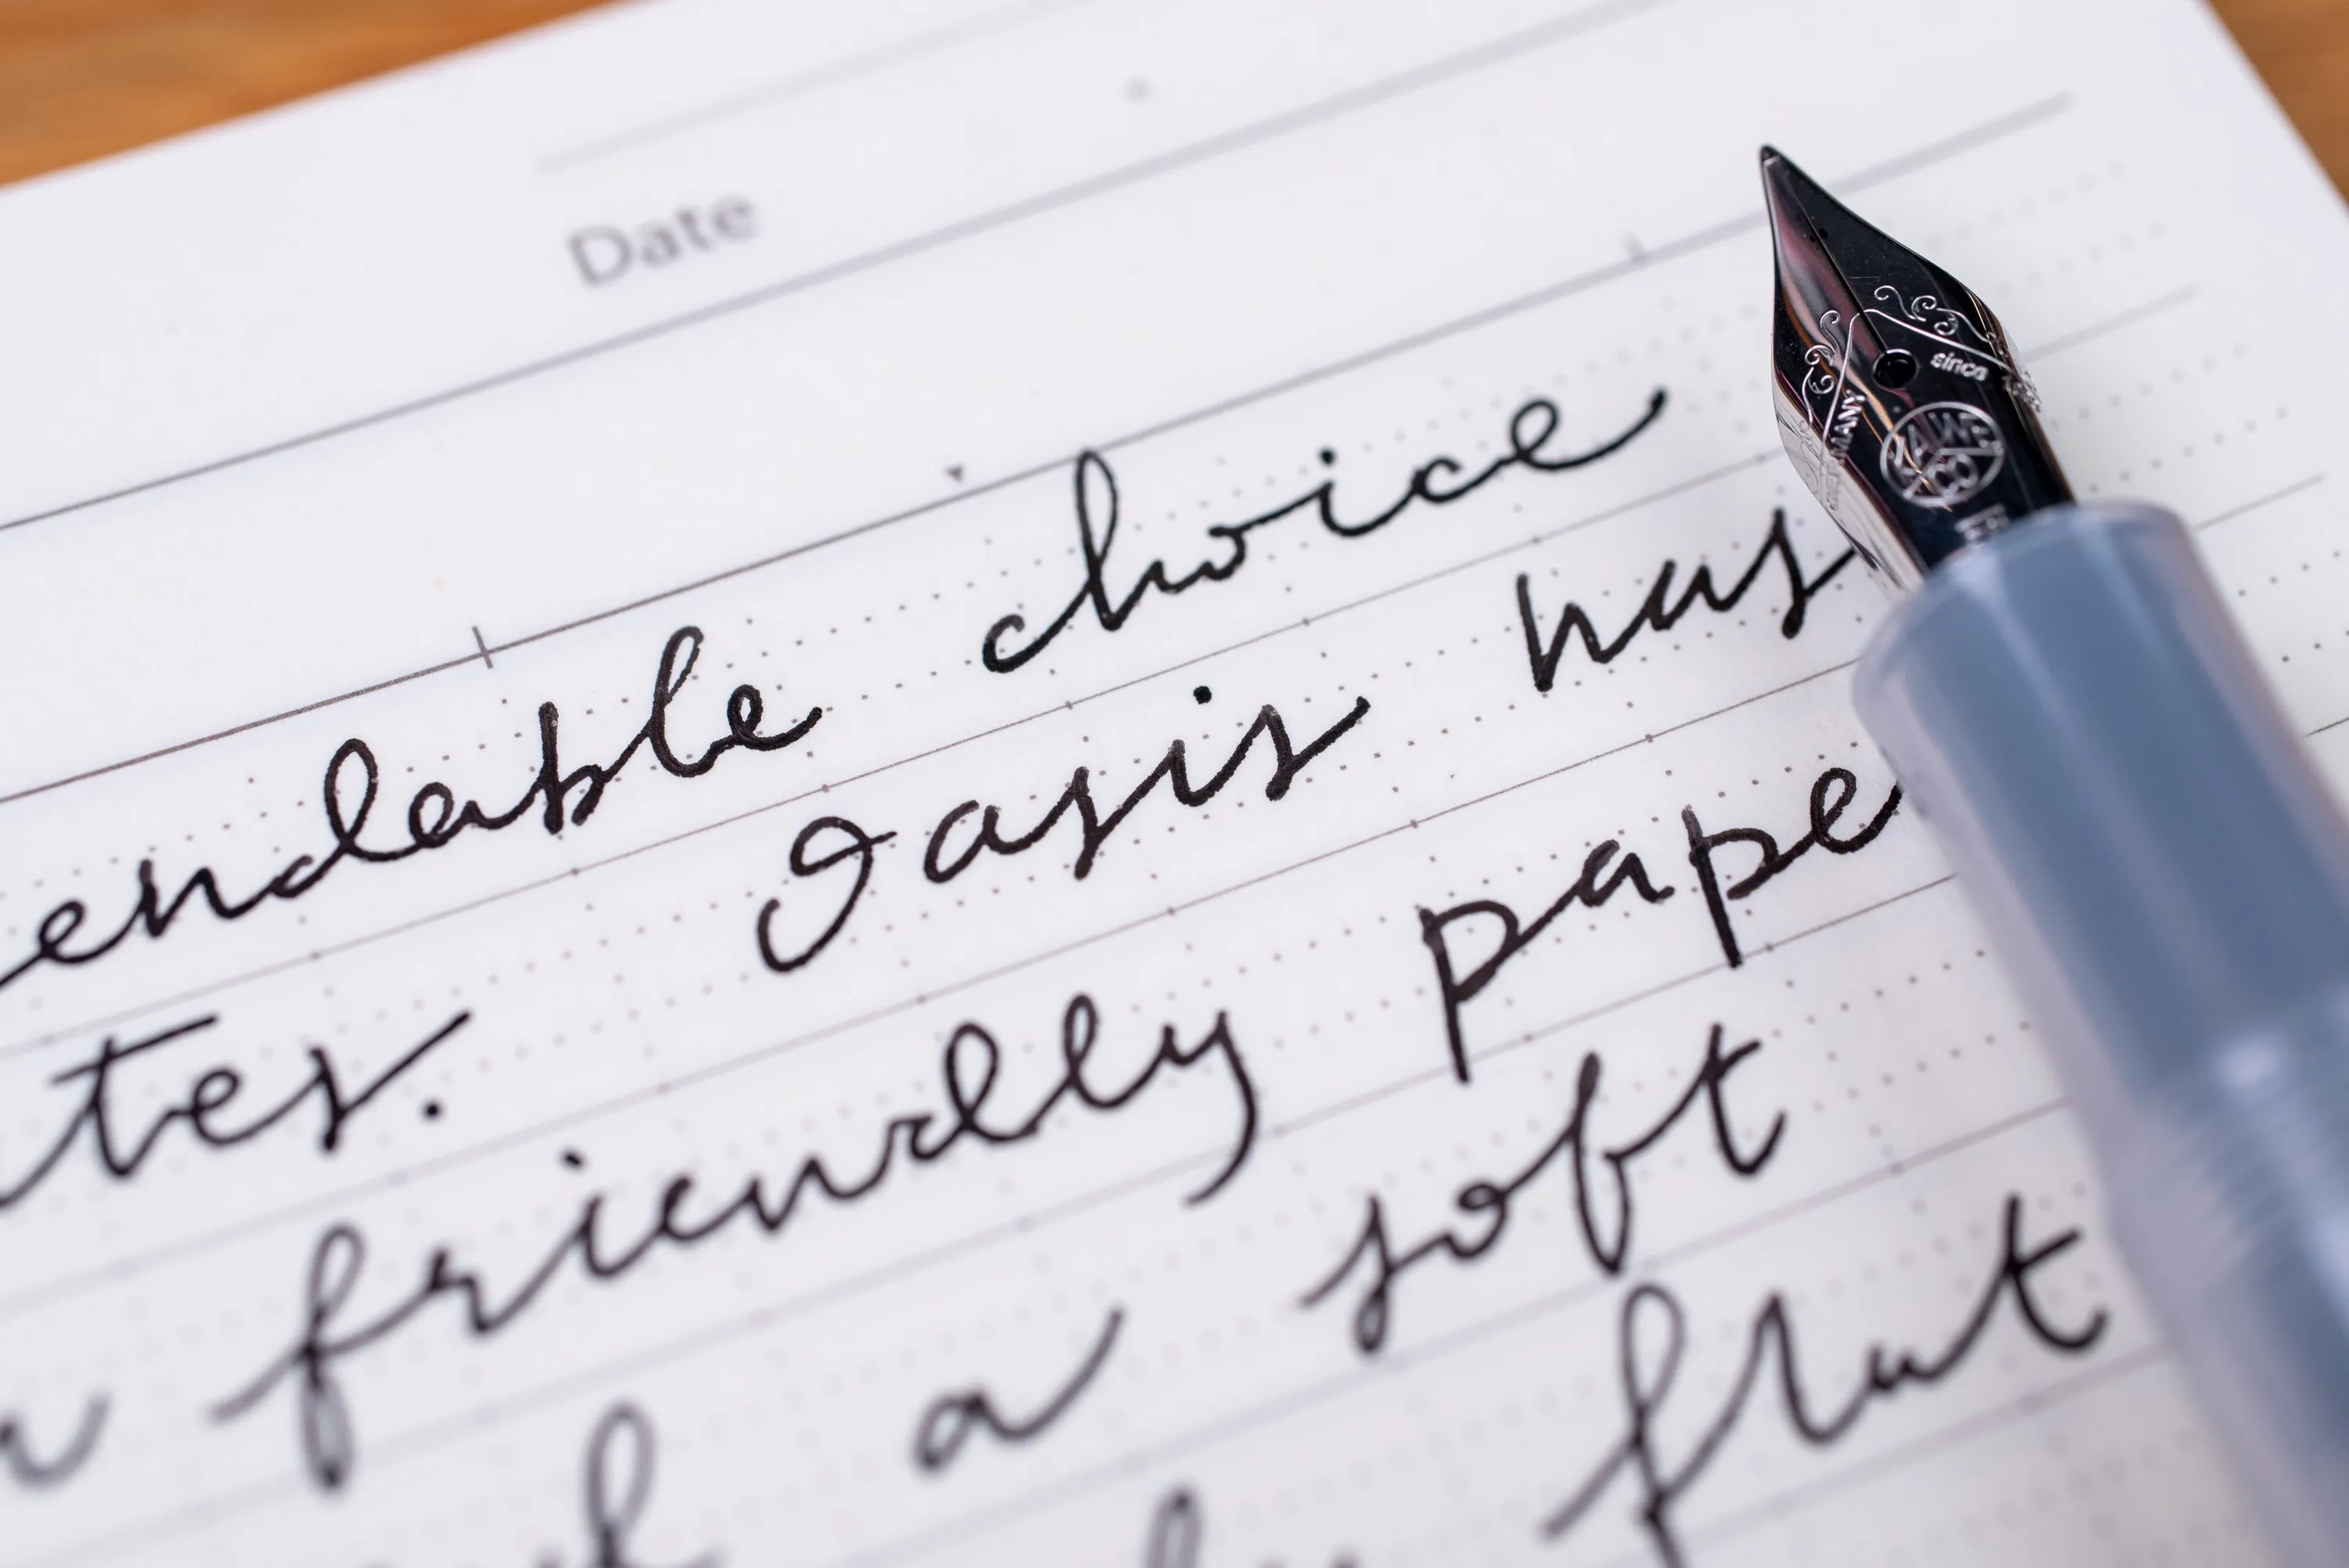 Date
endable choice
tes. Oasis has
friendly pape
a soft
flat
since
KAWECO
GERMANY